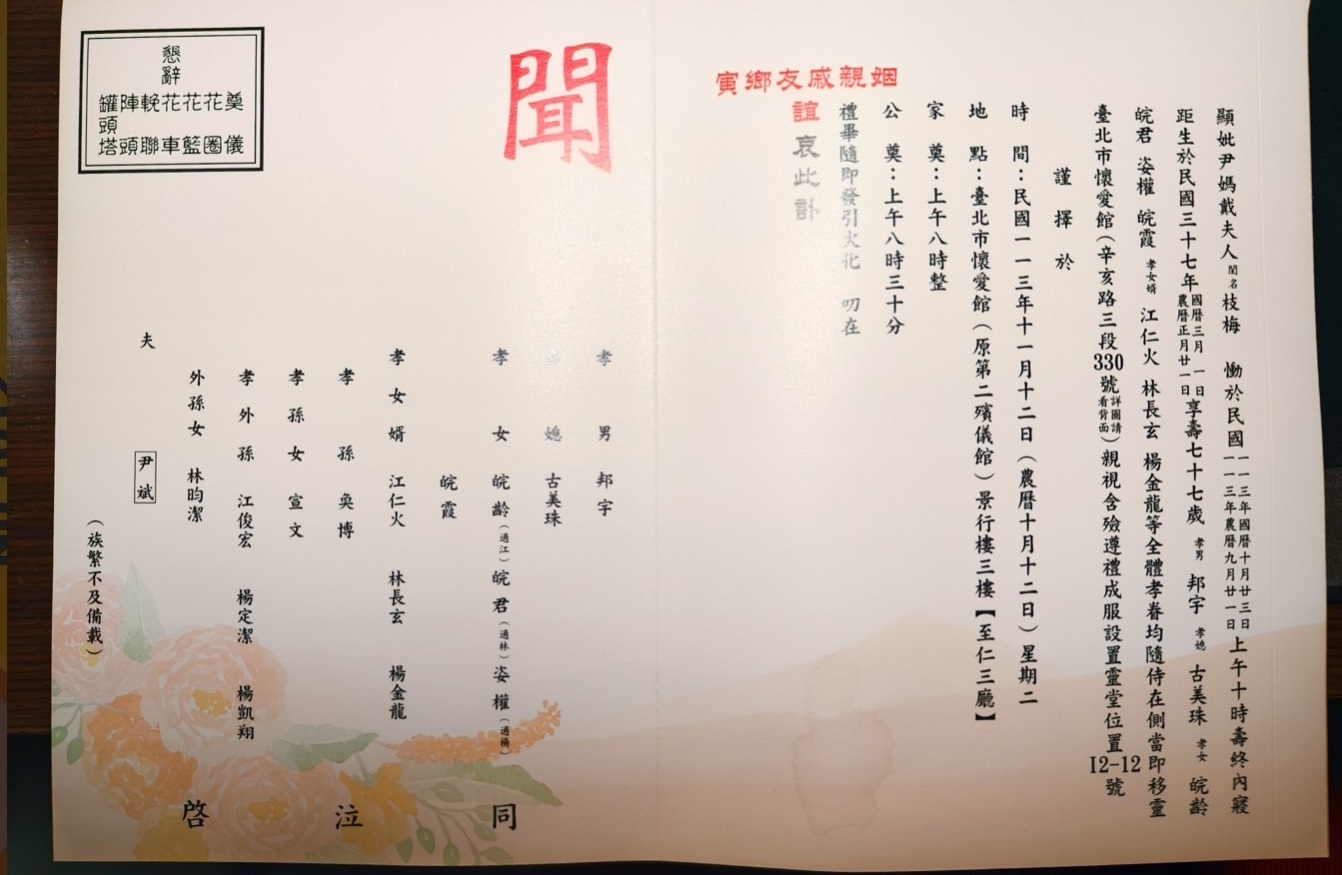 顯妣尹媽戴夫人閨名枝梅 慟於民國一一三年國曆十月廿三日一一三年農曆九月廿一日上午十時壽終內寢
距生於民國三十七年國曆三月一日農曆正月廿一日享壽七十七歲 孝男 邦宇 孝媳 古美珠 孝女 皖齡
皖君 姿權 皖霞 孝女婿 江仁火 林長玄 楊金龍等全體孝眷均隨侍在側當即移靈
臺北市懷愛館(辛亥路三段330號詳圖請看背面)親視含殮遵禮成服設置靈堂位置I2-12號
謹擇於
時 間：民國一一三年十一月十二日(農曆十月十二日)星期二
地 點：臺北市懷愛館(原第二殯儀館)景行樓三樓【至仁三廳】
家 奠：上午八時整
公 奠：上午八時三十分
禮畢隨即發引火化 叨在
姻親戚友鄉寅
誼 哀此訃
聞
孝男 邦宇
媳 古美珠
孝女 皖齡(適江) 皖君(適林) 姿權(適楊)
皖霞
孝女婿 江仁火 林長玄 楊金龍
孝孫 奐博
孝孫女 宣文
孝外孫 江俊宏 楊定潔 楊凱翔
外孫女 林昀潔
夫 尹斌
(族繁不及備載)
同 泣 啓
懇辭
奠儀
花圈
花籃
花車
輓聯
陣頭
罐頭塔